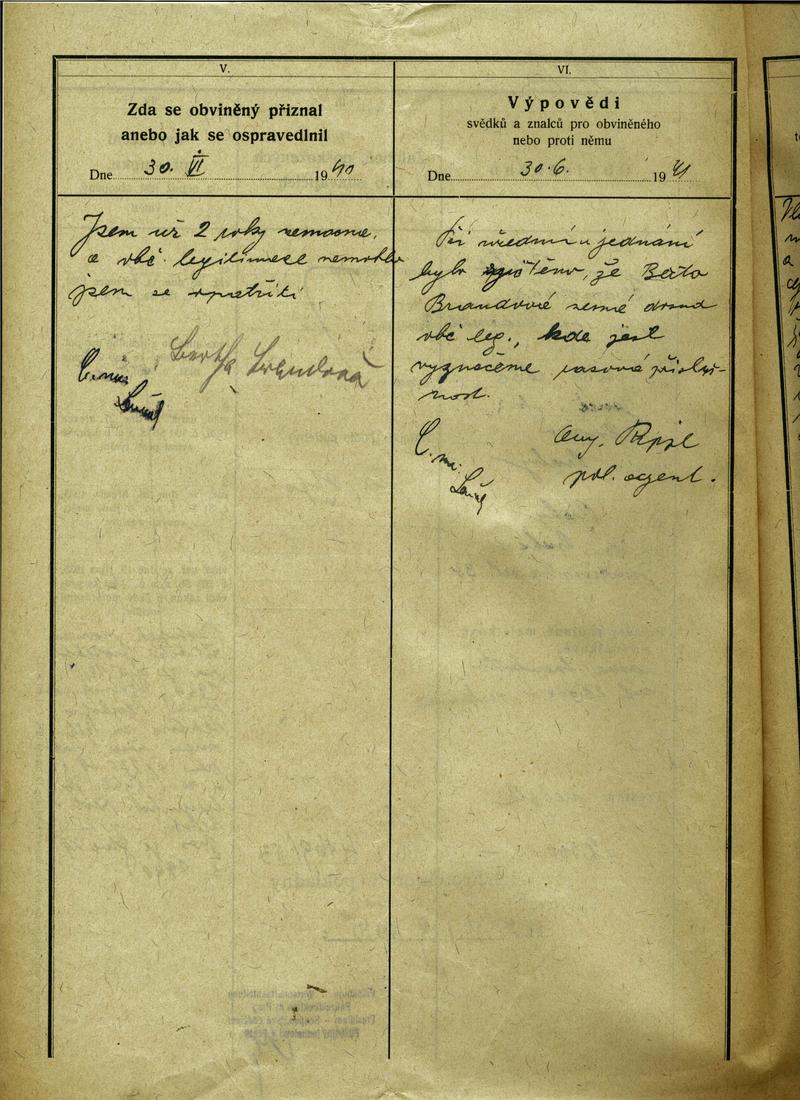 V.
Zda se obviněný přiznal
anebo jak se ospravedlnil
Dne 30. VI 1941
Jsem už 2 roky nemocna,
a obč. legitimaci nemohla
jsem se opatřiti
Berta Brandová
VI.
Výpovědi
svědků a znalců pro obviněného
nebo proti němu
Dne 30.6. 1941
Při úředním jednání
bylo zjištěno, že Berta
Brandová nemá dosud
obč leg., kde jest
vyznačeme rasová příslu-
nost.
Aug.
pol. agent.